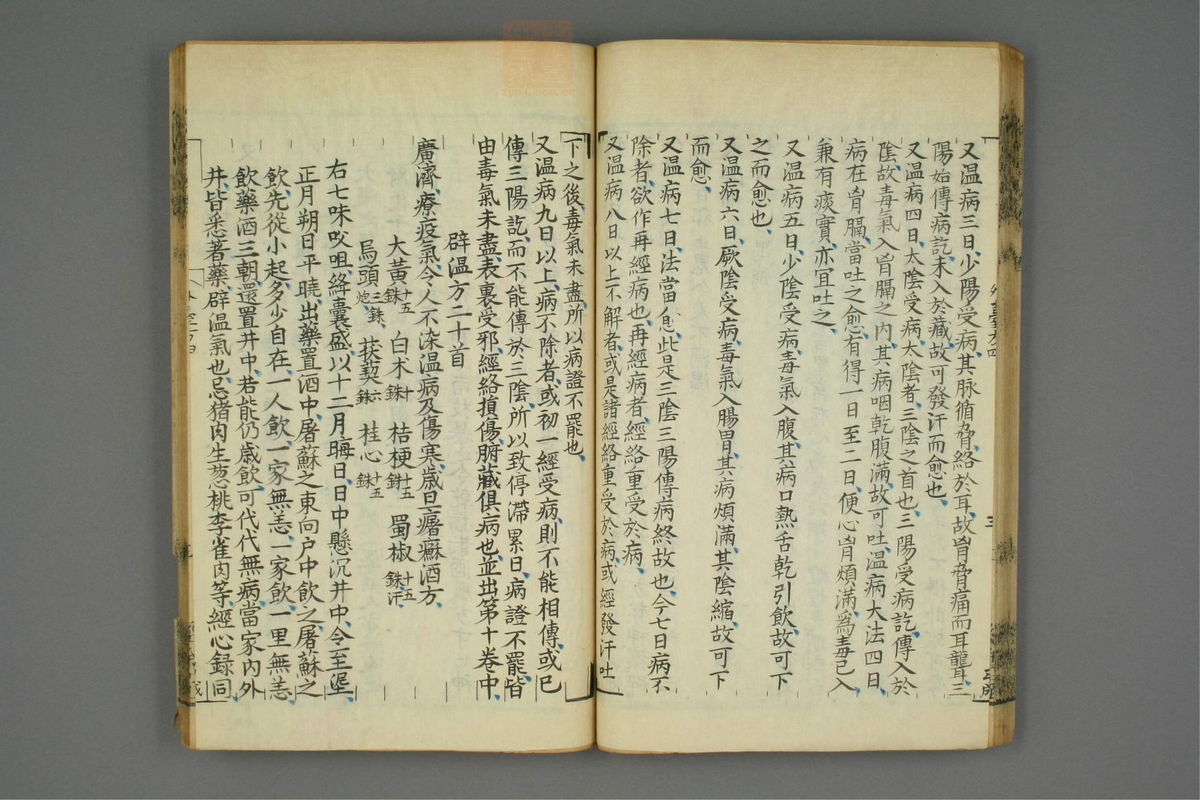 又温病三日少陽受病其脉循脅絡於耳故胷脅痛而耳聾三
陽始傳病訖未入於臓故可發汗而愈也
又温病四日太陰受病太陰者三陰之首也三陽受病訖傳入於
陰故毒氣入胷膈之内其病咽乾腹滿故可吐温病大法四日
病在胷膈當吐之愈有得一日至二日便心胷煩滿爲毒已入
兼有痰實亦宜吐之
又温病五日少陰受病毒氣入腹其病口熱舌乾引飲故可下
之而愈也
又温病六日厥陰受病毒氣入腸胃其病煩滿其陰縮故可下
而愈
又温病七日法當愈此是三陰三陽傳病終故也今七日病不
除者欲作再經病也再經病者經絡重受於病
又温病八日以上不解者或是諸經絡重受於病或經發汗吐
下之後毒氣未盡所以病證不罷也
又温病九日以上病不除者或初一經受病則不能相傳或已
傳三陽訖而不能傳於三陰所以致停滯累日病證不罷皆
由毒氣未盡表裏受邪經絡損傷腑臓俱病也並出第十卷中
辟温方二十首
廣濟療疫氣令人不染温病及傷寒歲旦屠蘇酒方
大黄十五銖 白术十銖 桔梗十五銖 蜀椒十五銖汗
烏頭三銖炮 菝葜六銖 桂心十五銖
右七味㕮咀絳囊盛以十二月晦日日中懸沉井中令至埿
正月朔日平曉出藥置酒中屠蘇之東向户中飲之屠蘇之
飲先從小起多少自在一人飲一家無恙一家飲一里無恙
飲藥酒三朝還置井中若能仍歳飲可代代無病當家内外
井皆悉著藥辟温氣也忌猪肉生葱桃李雀肉等經心録同